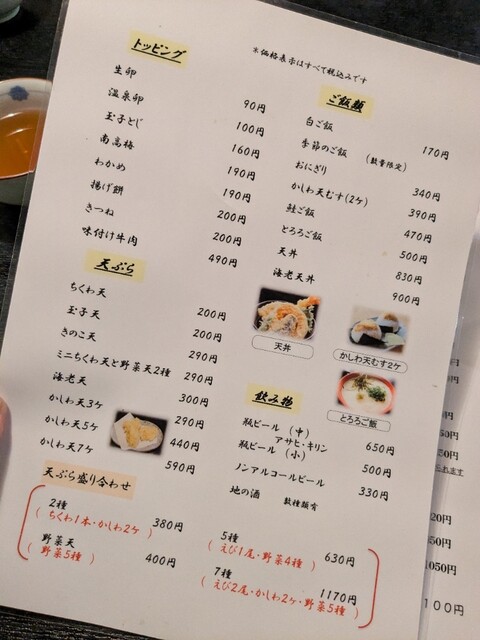 トッピング
生卵 90円
温泉卵 100円
玉子とじ 160円
南高梅 190円
わかめ 190円
揚げ餅 200円
きつね 200円
味付け牛肉 490円
天ぷら
ちくわ天 200円
玉子天 200円
きのこ天 290円
ミニちくわ天と野菜天2種 290円
海老天 300円
かしわ天3ケ 290円
かしわ天5ケ 440円
かしわ天7ケ 590円
※価格表示はすべて税込みです
ご飯類
白ご飯 170円
季節のご飯 (数量限定)
おにぎり 340円
かしわ天むす(2ケ) 390円
鮭ご飯 470円
とろろご飯 500円
天丼 830円
海老天丼 900円
天丼
かしわ天むす2ケ
とろろご飯
飲み物
瓶ビール (中) 650円
アサヒ・キリン
瓶ビール (小) 500円
ノンアルコールビール 330円
地の酒 数種類有
天ぷら盛り合わせ
2種 380円
(ちくわ1本・かしわ2ケ)
野菜天 400円
(野菜5種)
5種 630円
(えび1尾・野菜4種)
7種 1170円
(えび2尾・かしわ2ケ・野菜5種)
られます
1050円
100円